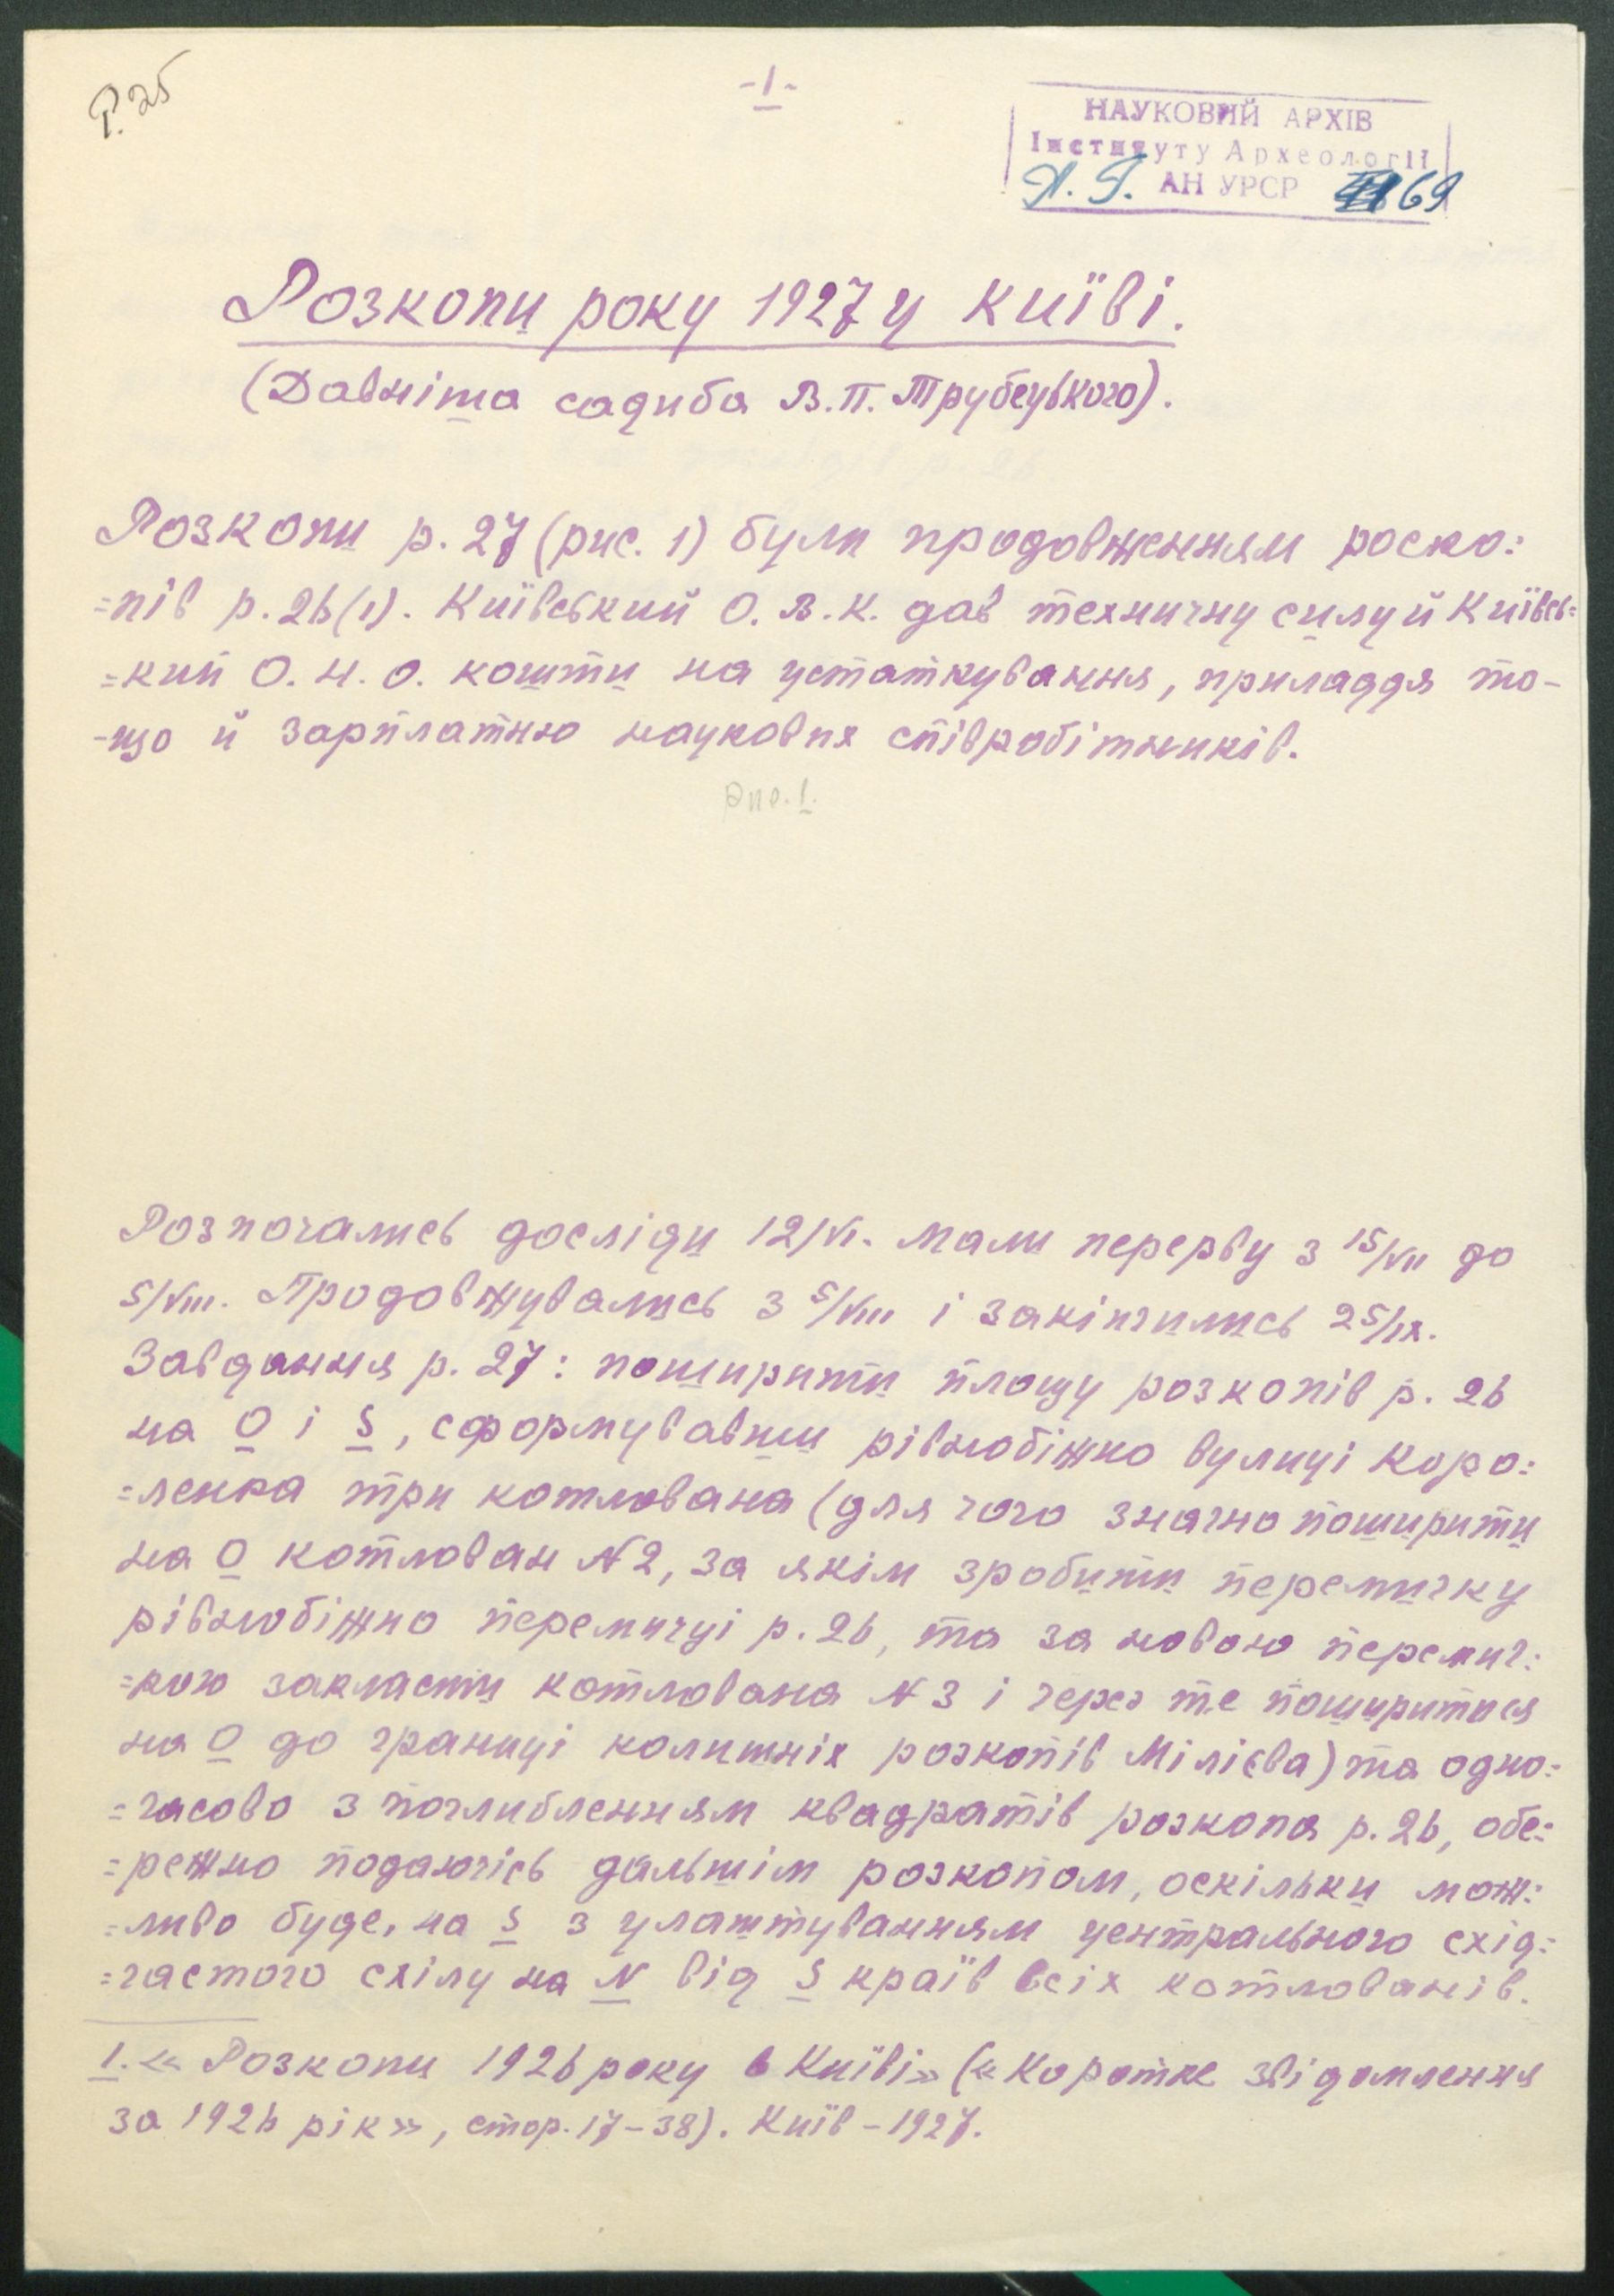 Р. 25
-1-
НАУКОВИЙ АРХІВ
Інституту Археології
АН УРСР 69
Розкопи року 1927 у Київі.
(Давніша садиба В.П. Трубецького).
Розкопи р. 27 (рис. 1) були продовженням роско=
=пів р. 26(1). Київський О.В.К. дав техничну силу й Київсь=
=кий О.Н.О. кошти на устаткування, приладдя то-
-що й зарплатню наукових співробітників.
рис. 1.
Розпочались досліди 12/VI. Мали перерву з 15/VII до
5/VIII. Продовжувались з 5/VIII і закінчились 25/IX.
Завдання р. 27: поширити площу розкопів р. 26
на O і S, сформувавши рівнобіжно вулиці Коро=
=ленка три котлована (для чого значно поширити
на O котлован N2, за якім зробити перемичку
рівнобіжно перемичці р. 26, та за новою перемич=
=кою закласти котлована N3 і через те поширитися
на O до границі колишніх розкопів Мілієва) та одно=
=часово з поглибленням квадратів розкопа р. 26, обе=
=режно подаючісь дальшім розкопом, оскільки мож=
=ливо буде, на S з улаштуванням центрального схід=
=частого схілу на N від S країв всіх котлованів.
1. «Розкопи 1926 року в Київі» («Коротке звідомлення
за 1926 рік», стор. 17-38). Київ - 1927.